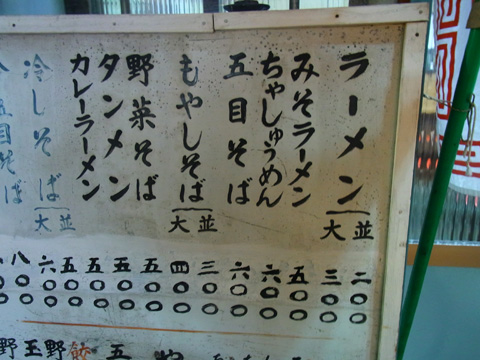 ラーメン 並 二〇〇
大 三〇〇
みそラーメン 五〇〇
ちゃしゅうめん 六〇〇
五目そば 六〇〇
もやしそば 並 三〇〇
大 四〇〇
野菜そば 五〇〇
タンメン 五〇〇
カレーラーメン 五〇〇
冷しそば 並 五〇〇
大 六〇〇
五目そば 八〇〇
五
餃
野
玉
野